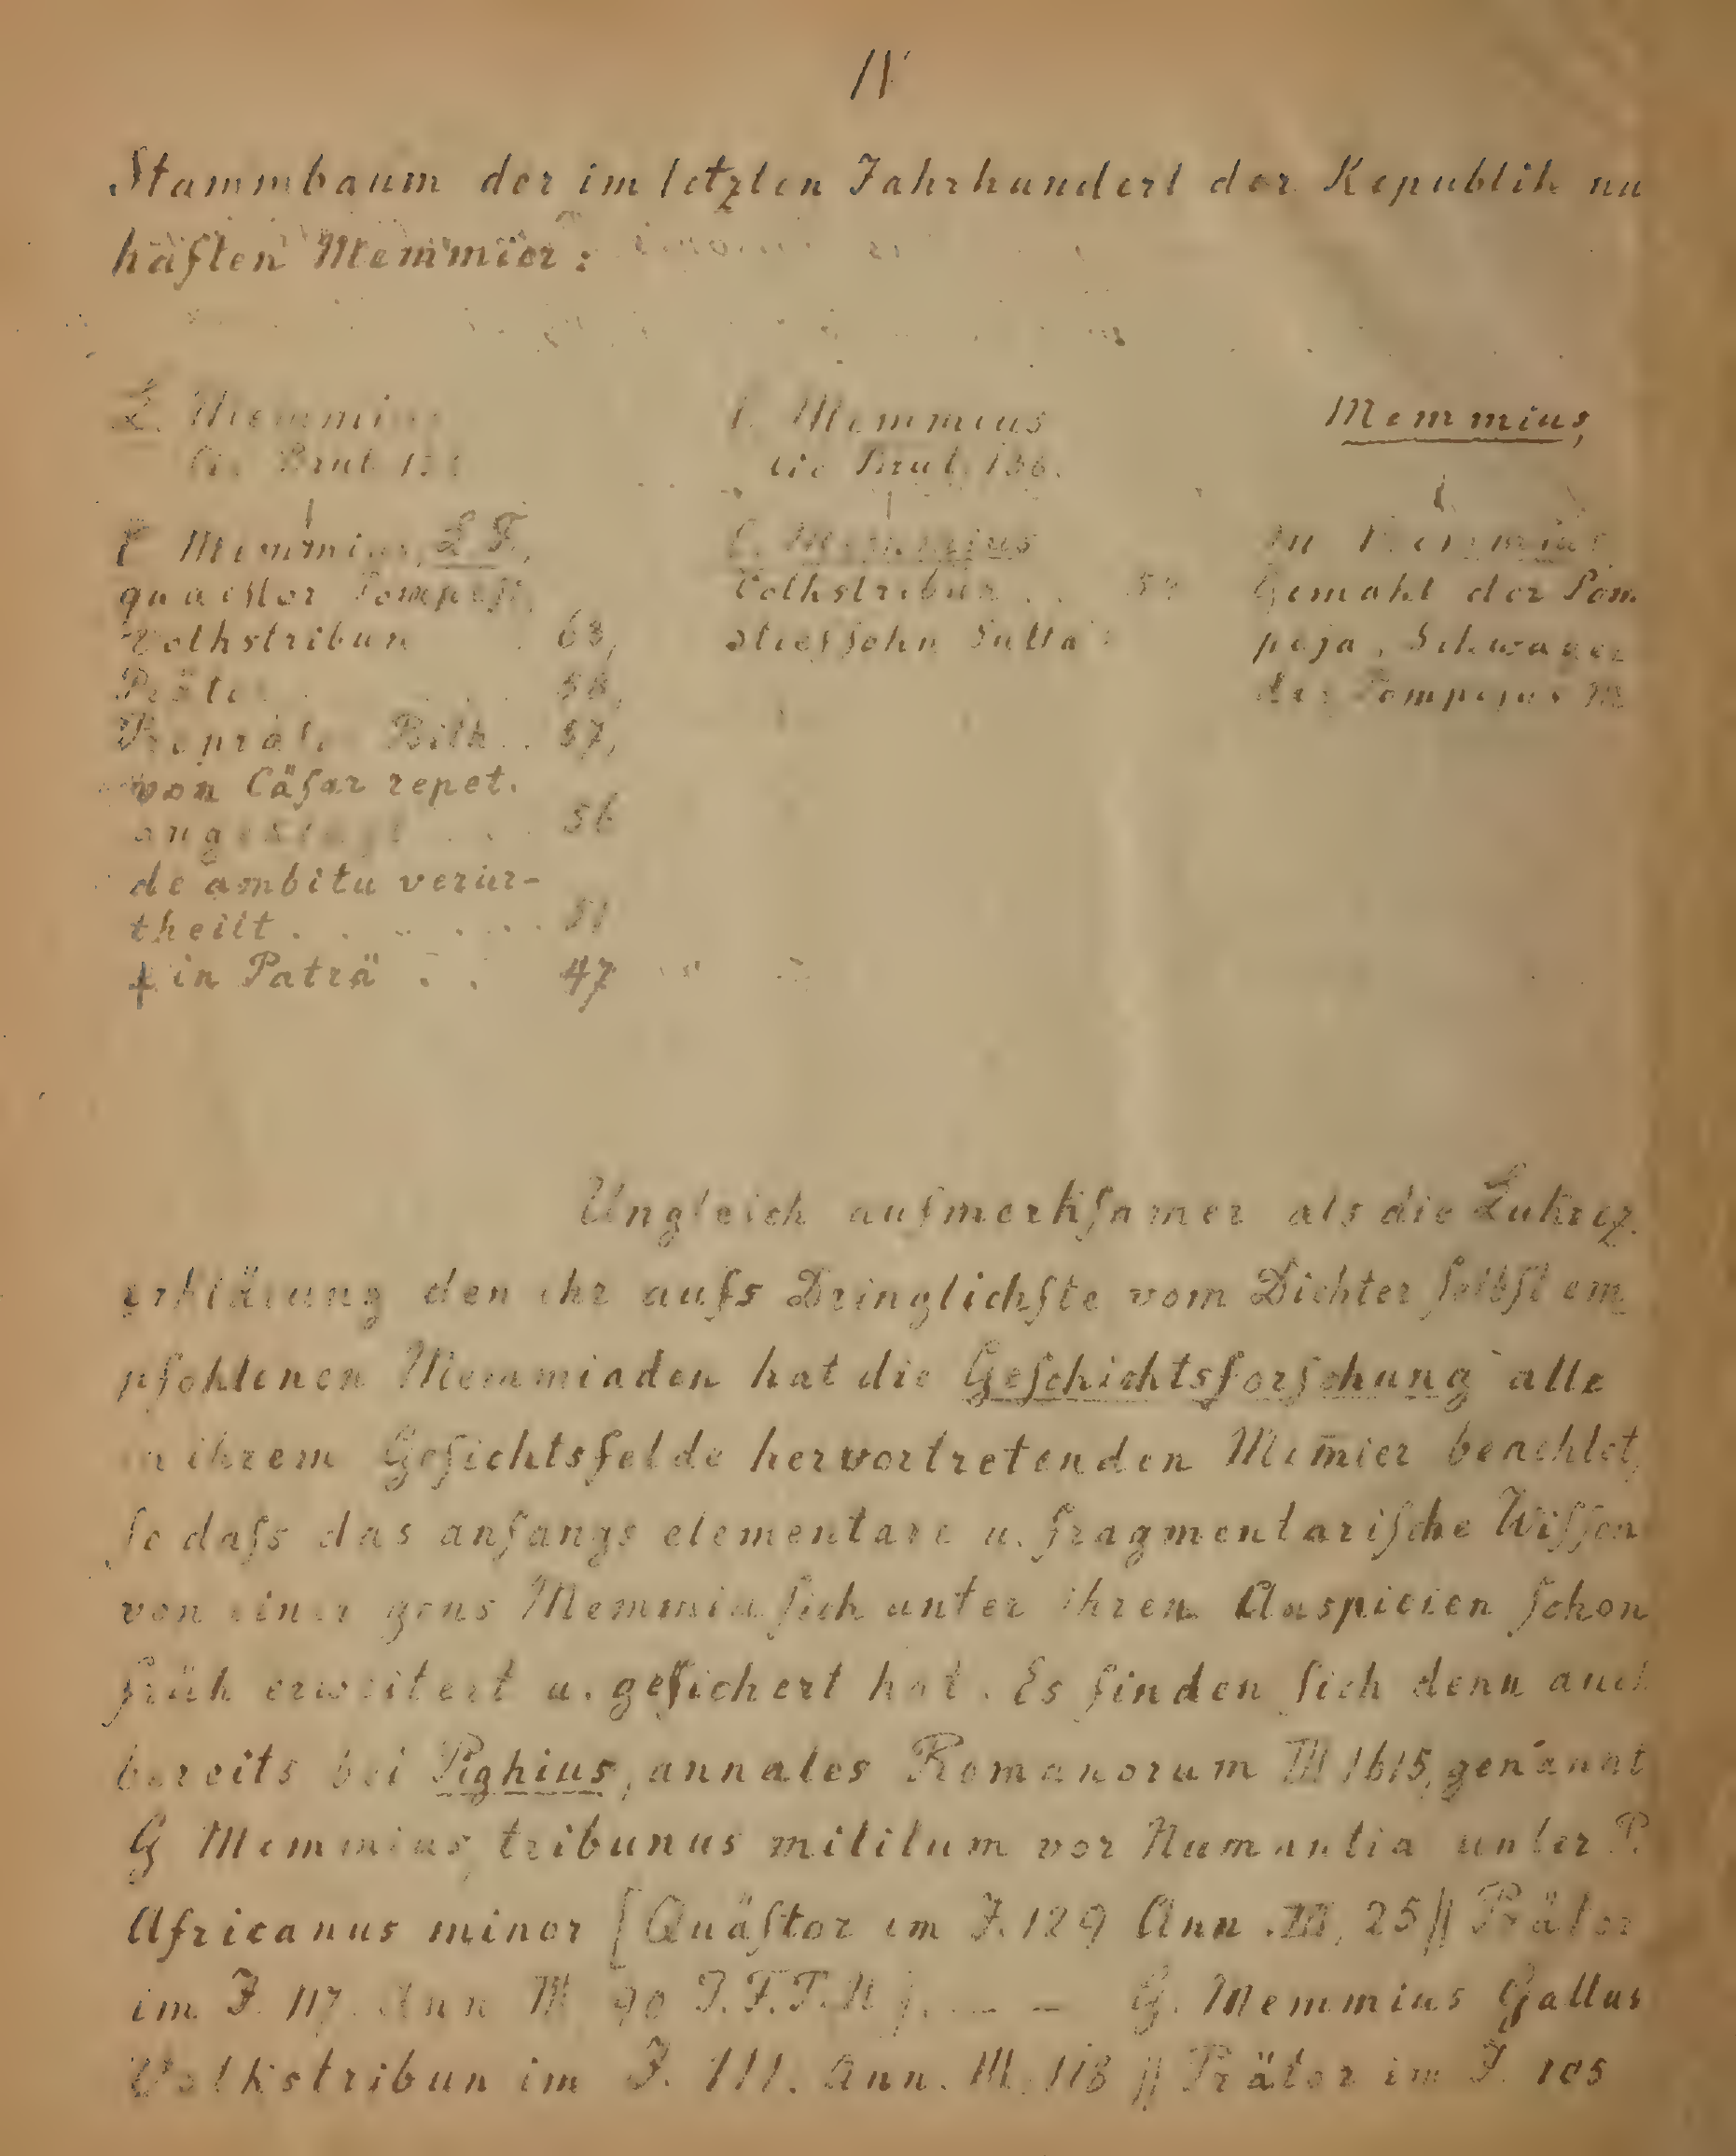 IV
Stammbaum der im letzten Jahrhundert der Republik nu
häften Memmier:
L. Memmius
Cic Brut 136
C Memmius, L. F.,
quaestor Pompeji,
Volkstribun . 63,
Prätor . . . . 58,
Proprätor Bith . . 57,
von Cäſar repet.
angeklagt . . . 56
de ambitu verur-
theilt . . . . . . . 51
† in Paträ . . 47
C. Memmius
cic Brut, 136.
C. Memmius
Volkstribun . . 54
Stiefſohn Sulla's
Memmius,
Memmius
Gemahl der Pom
peja, Schwager
des Pompejus M
Ungleich aufmerkſamer als die Lukrez
erklärung den ihr aufs Dringlichſte vom Dichter ſelbſt em
pfohlenen Memmiaden hat die Geſchichtsforſchung alle
in ihrem Geſichtsfelde hervortretenden Mem̄ier beachtet,
ſo daſs das anfangs elementare u. fragmentariſche Wiſſen
von einer gens Memmia ſich unter ihren Auspicien ſchon
früh erweitert u. geſichert hat. Es finden ſich denn auch
bereits bei Pighius, annales Romanorum III 1615, genannt
G Memmius, tribunus militum vor Numantia unter P.
Africanus minor [Quäſtor im J. 129 Ann. III, 25 || Prätor
im J. 117. Ann III 90 ]. — — G. Memmius Gallus
Volkstribun im J. 111. Ann. III. 118 || Prätor im J. 105